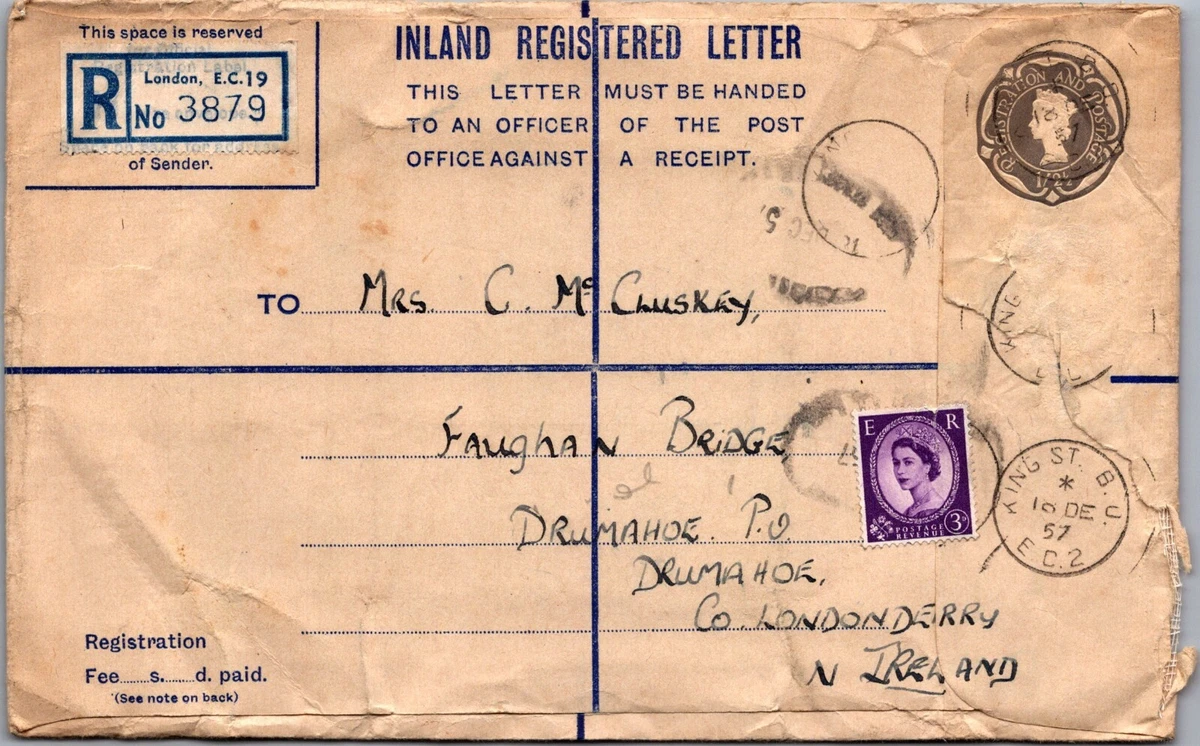 This space is reserved
for Official
Registration Label
R
London, E.C.19
No 3879
of Sender.
INLAND REGISTERED LETTER
THIS LETTER MUST BE HANDED
TO AN OFFICER OF THE POST
OFFICE AGAINST A RECEIPT.
REGISTRATION AND POSTAGE
1/2½
TO Mrs. C. Mc Cluskey,
KING
Faughan Bridge
Drumahoe. P.O.
Drumahoe,
Co. Londonderry
N Ireland
E R
POSTAGE
REVENUE
3D
KING ST. B.O.
*
10 DE
57
E.C.2
Registration
Fee......s......d. paid.
(See note on back)